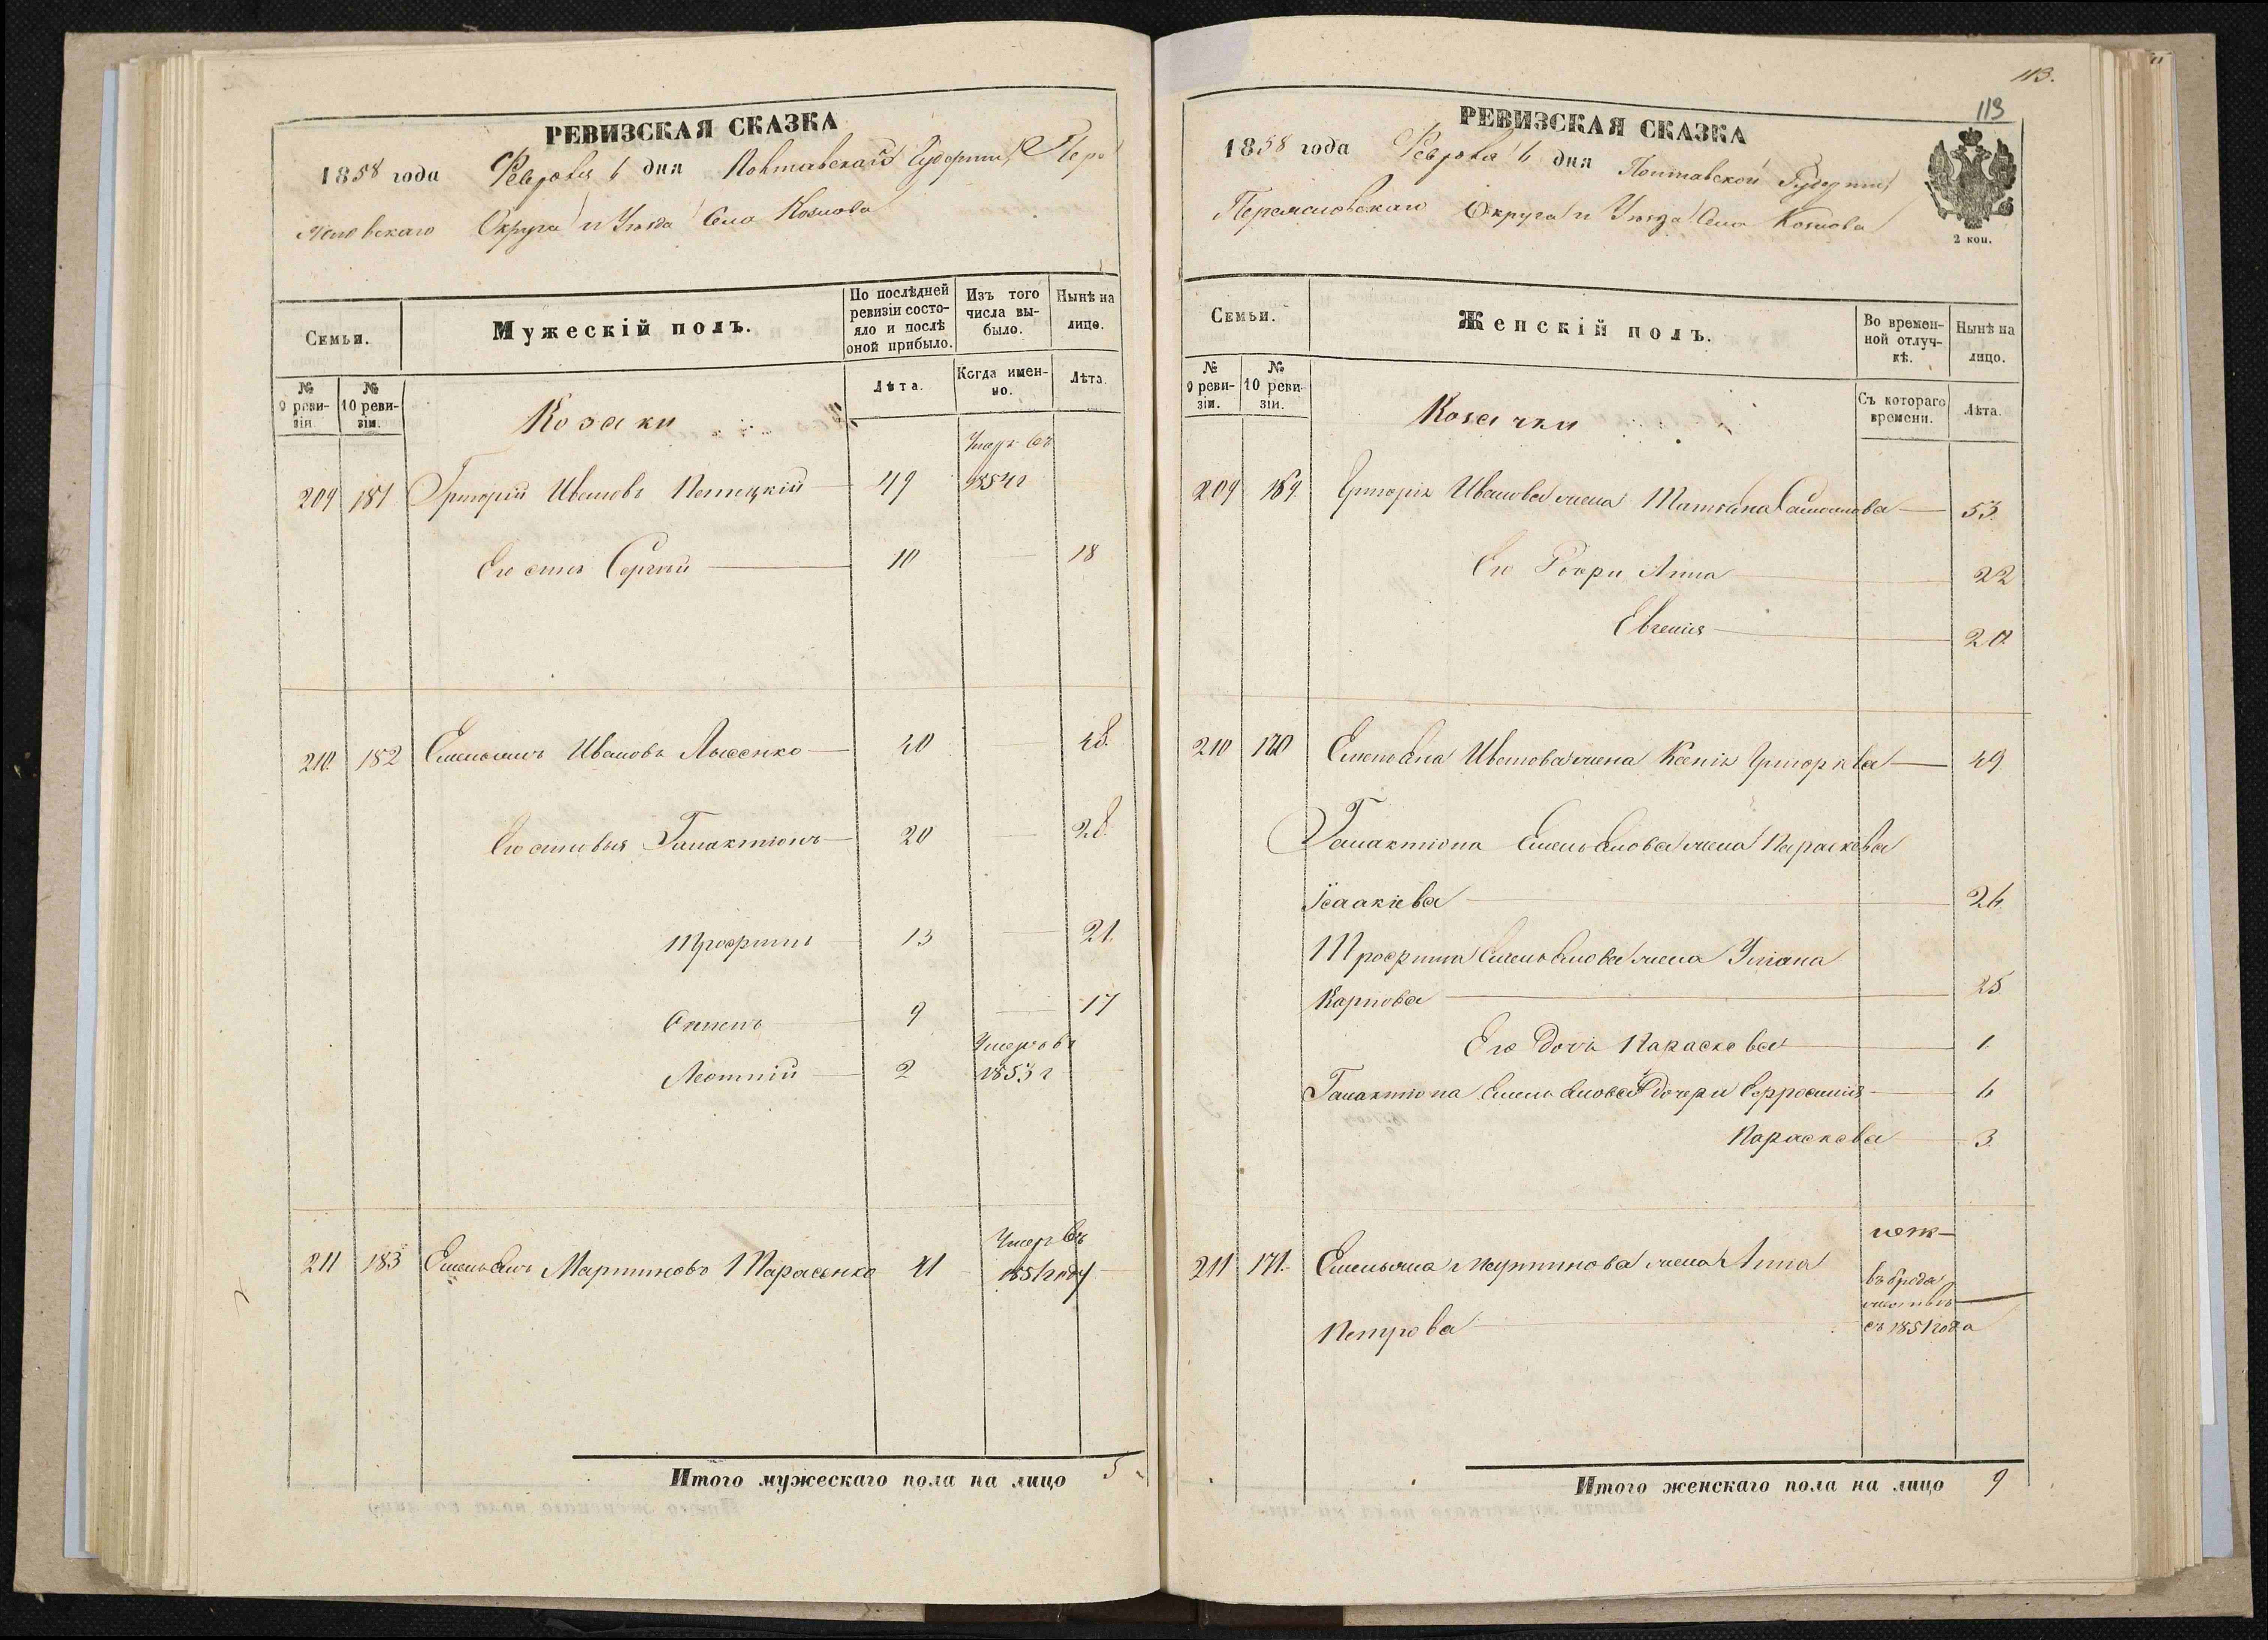 РЕВИЗСКАЯ СКАЗКА
1858 года Февраля 6 дня Полтавской Губернии Пере
яславскаго Округа и Уезда Села Козлова
Семьи.
Мужескій полъ.
По послѣдней ревизіи состояло и послѣ оной прибыло.
Изъ того числа выбыло.
Нынѣ на лице.
№ 9 ревизіи
№ 10 ревизіи.
Лѣта.
Когда именно.
Лѣта.
Козаки
Умер въ
209 181 Григорій Ивановъ 49 1854 г
Его сынъ Сергѣй 10 — 18
210. 182 Емельянъ Ивановъ Лысенко 40 48.
Его сыновья Галактіонъ 20 — 28.
Трофимъ 13 — 21.
9 — 17
Умеръ въ
Леонтій 2 1853 г
Умер въ
211 183 Емельянъ Мартиновъ Тарасенко 41 1851 году
Итого мужескаго пола на лицо 5
113.
113
РЕВИЗСКАЯ СКАЗКА
1858 года Февраля 6 дня Полтавской Губерніи
Переяславскаго Округа и Уезда Села Козлова
2 коп.
Семьи.
Женскій полъ.
Во временной отлучкѣ.
Нынѣ на лицо.
№ 9 ревизіи.
№ 10 ревизіи.
Съ котораго времени.
Лѣта.
Козачки
209 169. Григорія Иванова жена Татьяна 53.
Его Дочри Анна 22
Евгенія 20
210 170 Емельяна Иванова жена Ксенія Григорьева 49
Галактіона Емельянова жена Параскева
Ісаакіева 26.
Трофима Емельянова жена Уліана
Карпова 25
Его Дочь Параскева 1.
Галактіона Емельянова Дочери Ефросинія 6
Параскева 3.
211 171. Емельяна Мартинова жена Анна
Петрова съ 1851 года
Итого женскаго пола на лицо 9